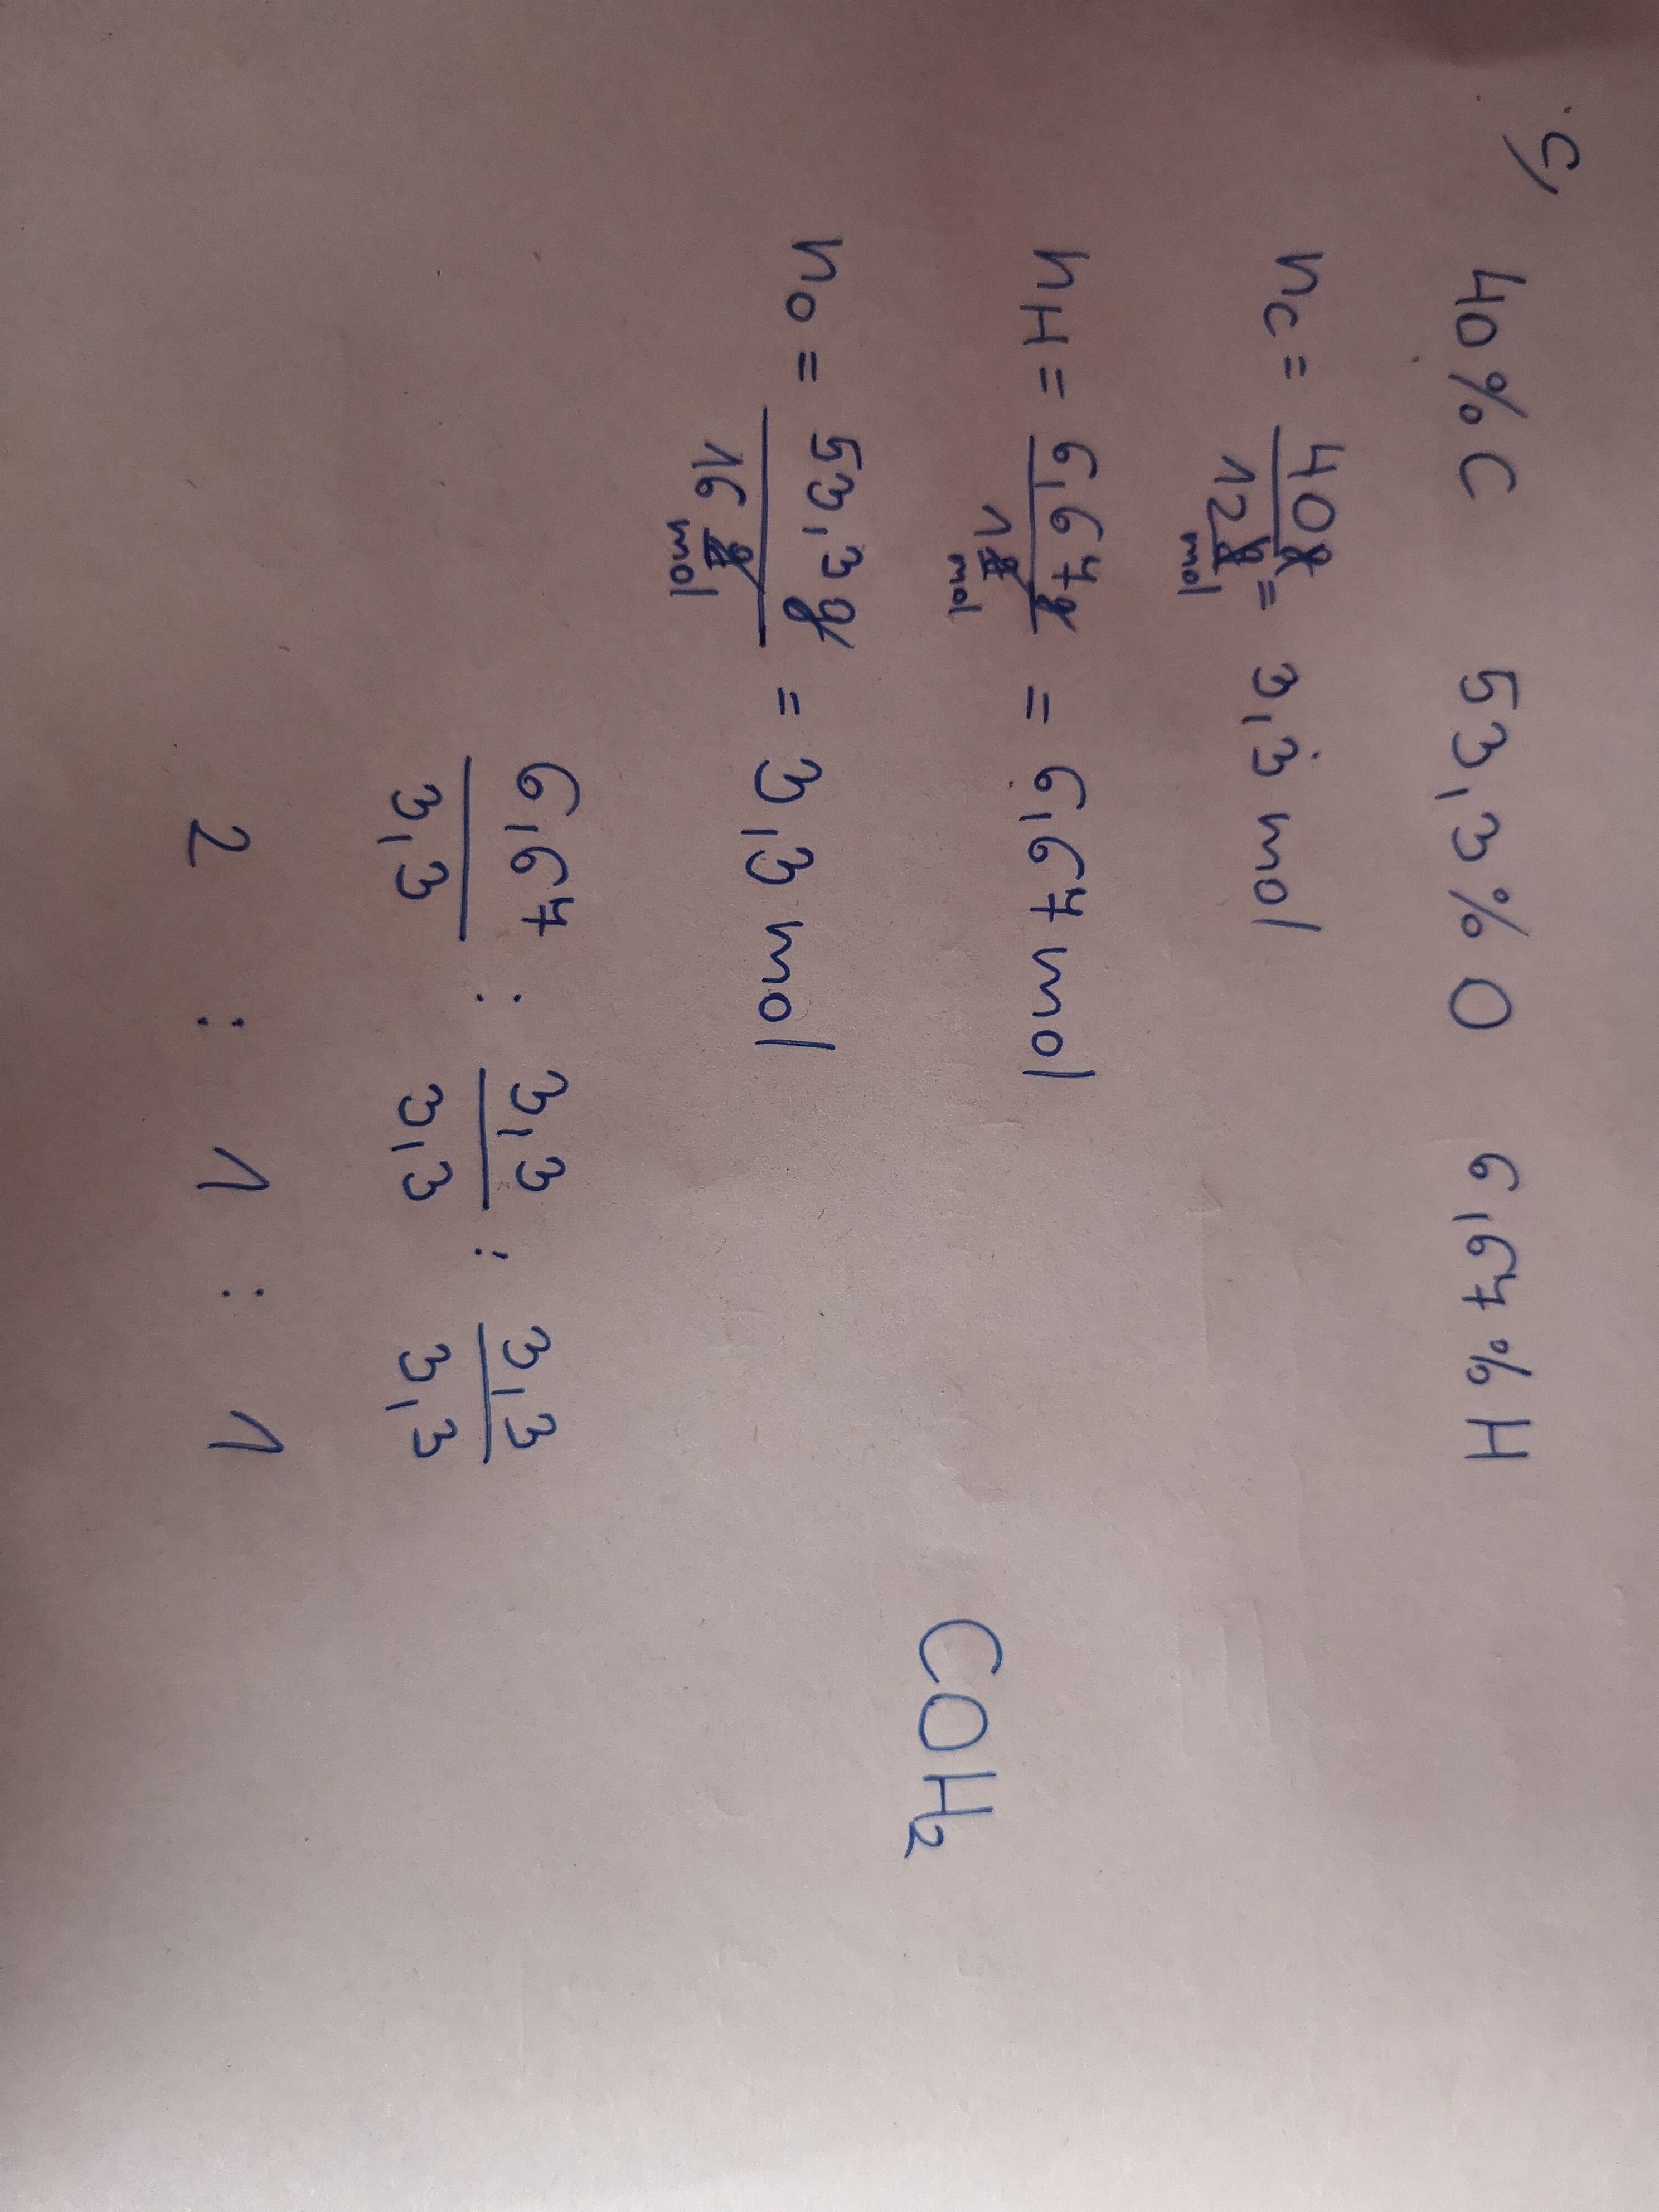 c,
40%C 53,3%O 6,67%H
nc = 40g / 12 g/mol = 3,3 mol
nH = 6,67g / 1 g/mol = 6,67 mol
no = 53,3g / 16 g/mol = 3,3 mol
COH₂
6,67/3,3 : 3,3/3,3 : 3,3/3,3
2 : 1 : 1